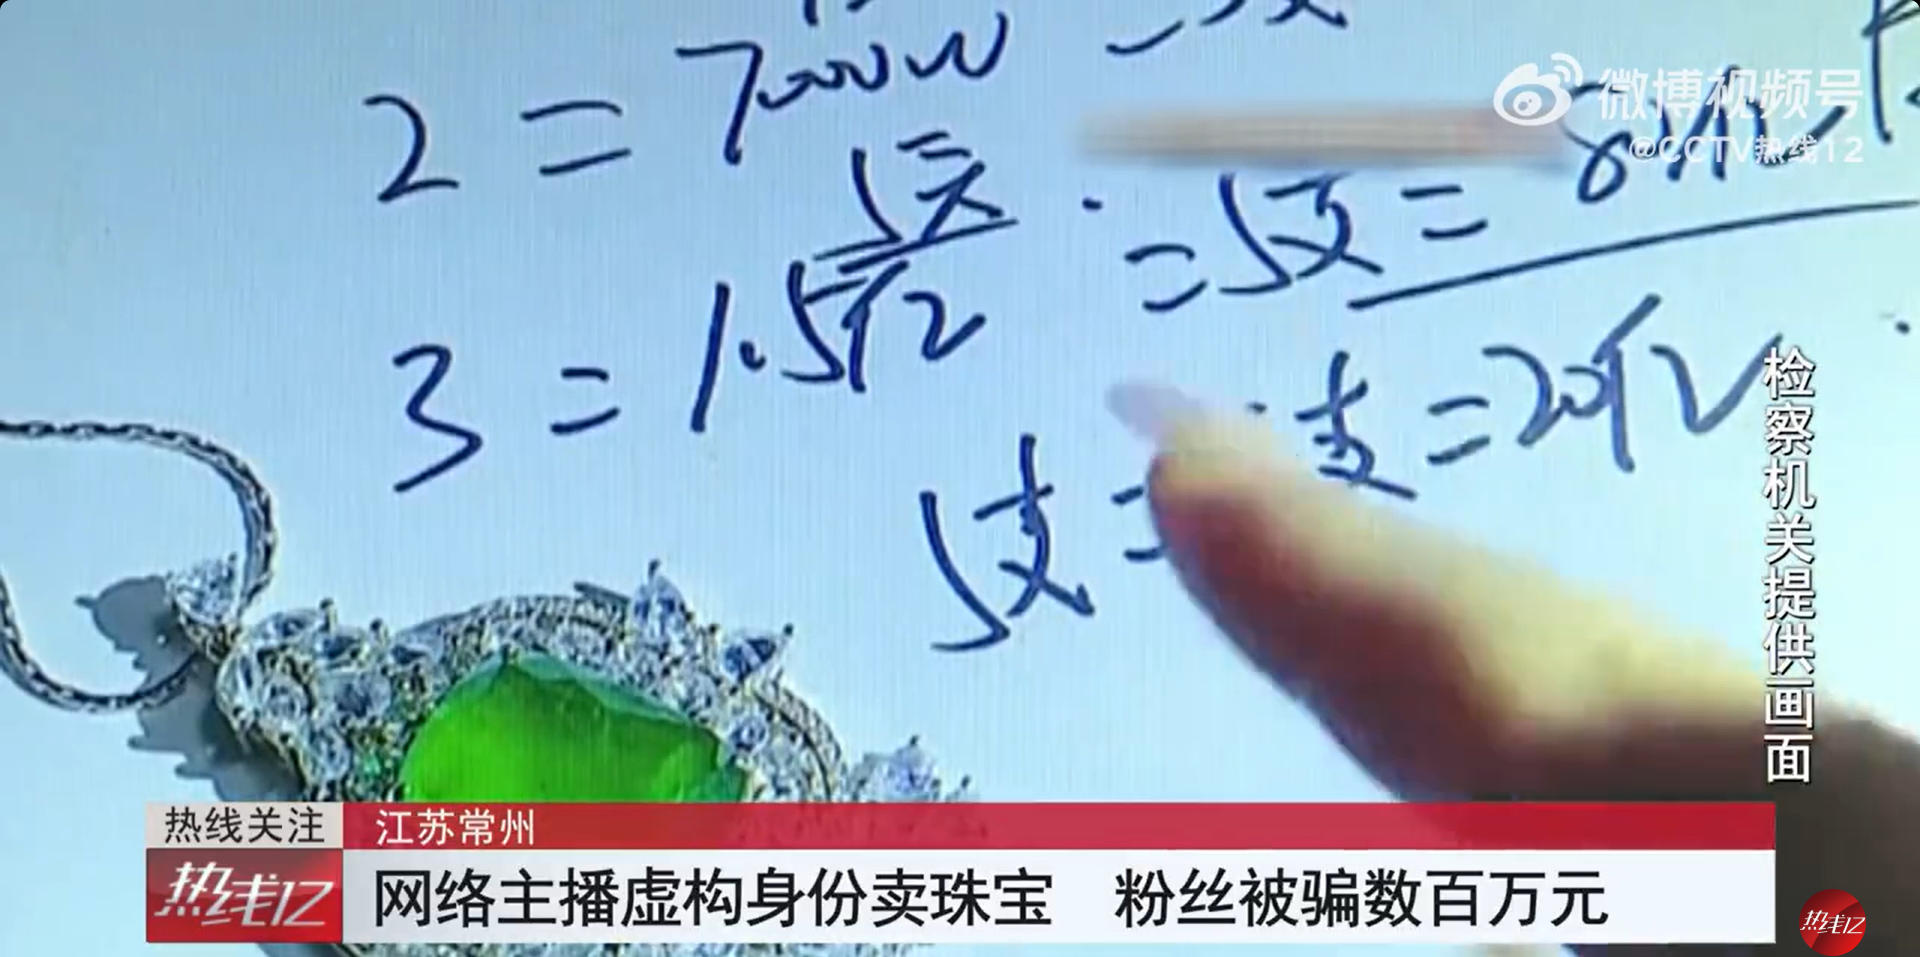 2 = 7000W
5天
3 = 1.5亿
= 5支 = 8个亿
5支 = 支 = 20亿
微博视频号
@CCTV热线12
检察机关提供画面
热线关注
江苏常州
热线12
网络主播虚构身份卖珠宝 粉丝被骗数百万元
热线12